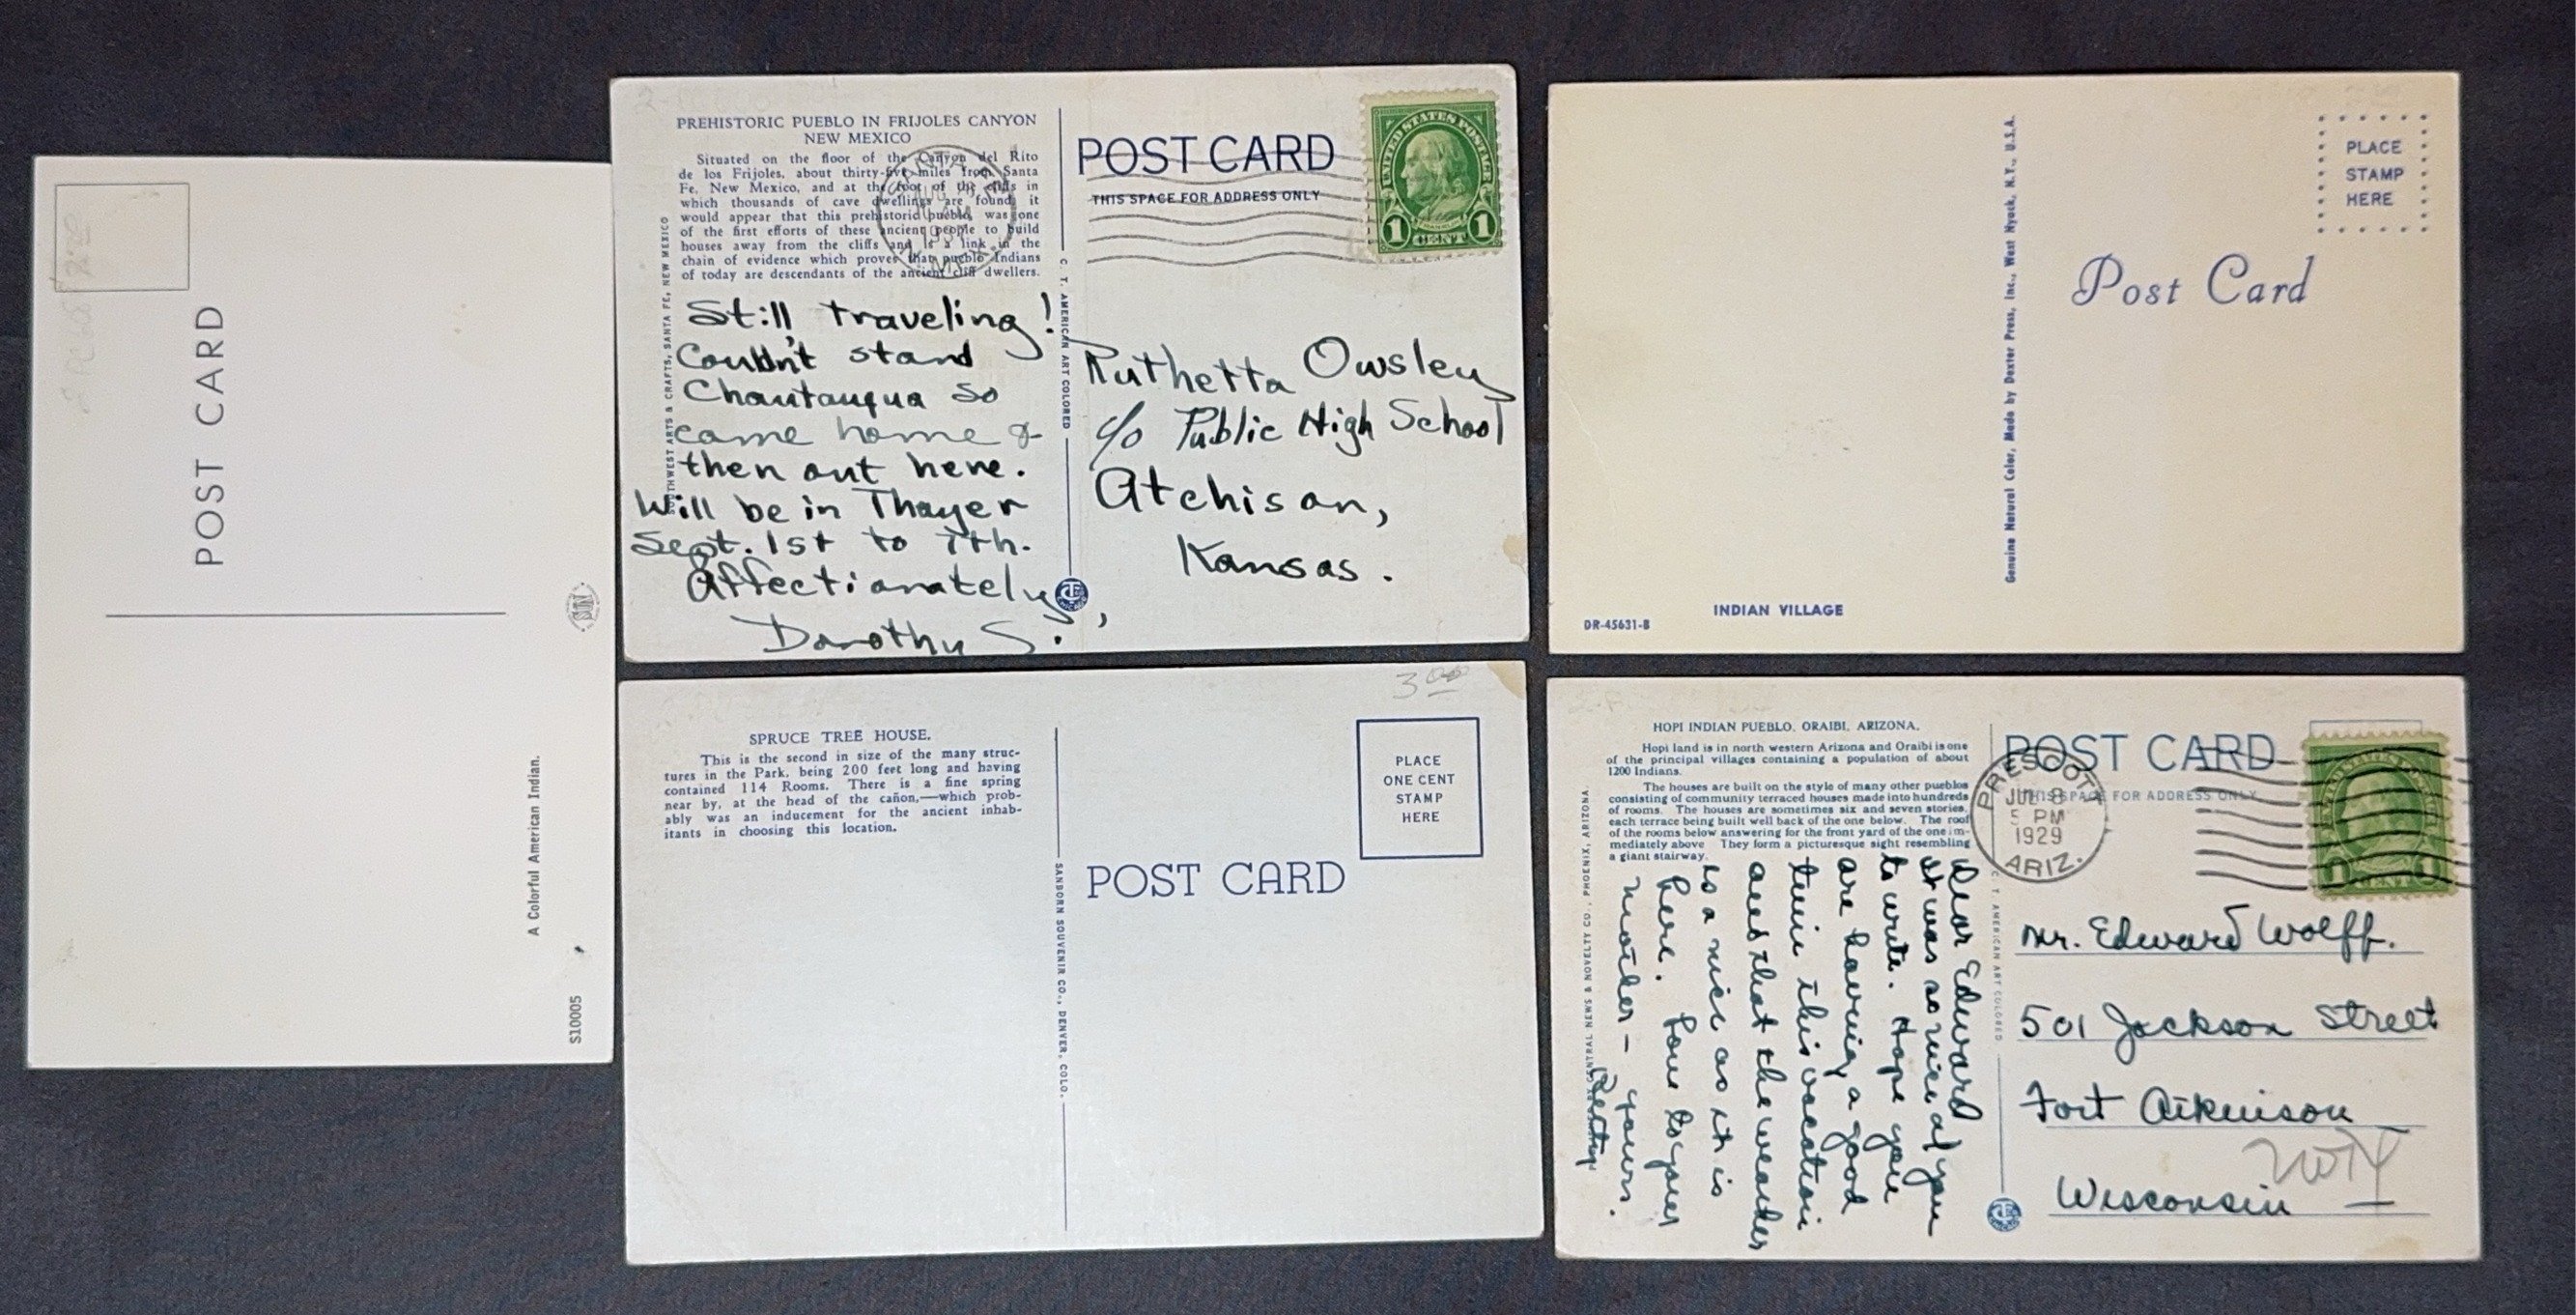 POST CARD
A Colorful American Indian.
S10005
PREHISTORIC PUEBLO IN FRIJOLES CANYON
NEW MEXICO
Situated on the floor of the Canyon del Rito
de los Frijoles, about thirty-five miles from Santa
Fe, New Mexico, and at the foot of the cliffs in
which thousands of cave dwellings are found, it
would appear that this prehistoric pueblo was one
of the first efforts of these ancient people to build
houses away from the cliffs and is a link in the
chain of evidence which proves that pueblo Indians
of today are descendants of the ancient cliff dwellers.
SOUTHWEST ARTS & CRAFTS, SANTA FE, NEW MEXICO
Still traveling!
Couldn't stand
Chautauqua so
came home &
then out here.
Will be in Thayer
Sept. 1st to 7th.
Affectionately,
Dorothy S.
C. T. AMERICAN ART COLORED
POST CARD
THIS SPACE FOR ADDRESS ONLY
UNITED STATES POSTAGE
FRANKLIN
1 CENT 1
Ruthetta Owsley
c/o Public High School
Atchison,
Kansas.
Genuine Natural Color, Made by Dexter Press, Inc., West Nyack, N.Y., U.S.A.
PLACE
STAMP
HERE
Post Card
INDIAN VILLAGE
DR-45631-B
3.00
SPRUCE TREE HOUSE.
This is the second in size of the many struc-
tures in the Park, being 200 feet long and having
contained 114 Rooms. There is a fine spring
near by, at the head of the cañon,—which prob-
ably was an inducement for the ancient inhab-
itants in choosing this location.
SANBORN SOUVENIR CO., DENVER, COLO.
PLACE
ONE CENT
STAMP
HERE
POST CARD
HOPI INDIAN PUEBLO, ORAIBI, ARIZONA.
Hopi land is in north western Arizona and Oraibi is one
of the principal villages containing a population of about
1200 Indians.
The houses are built on the style of many other pueblos
consisting of community terraced houses made into hundreds
of rooms. The houses are sometimes six and seven stories,
each terrace being built well back of the one below. The roof
of the rooms below answering for the front yard of the one im-
mediately above They form a picturesque sight resembling
a giant stairway.
CENTRAL NEWS & NOVELTY CO., PHOENIX, ARIZONA.
Dear Edward
It was so nice of you
to write. Hope you
are having a good
time this vacation
and that the weather
is a nice as it is
here. Love to your
mother - yours.
C. T. AMERICAN ART COLORED
POST CARD
THIS SPACE FOR ADDRESS ONLY
PRESCOTT
JUL 8
5 PM
1929
ARIZ.
Mr. Edward Wolff.
501 Jackson Street
Fort Atkinson
Wisconsin